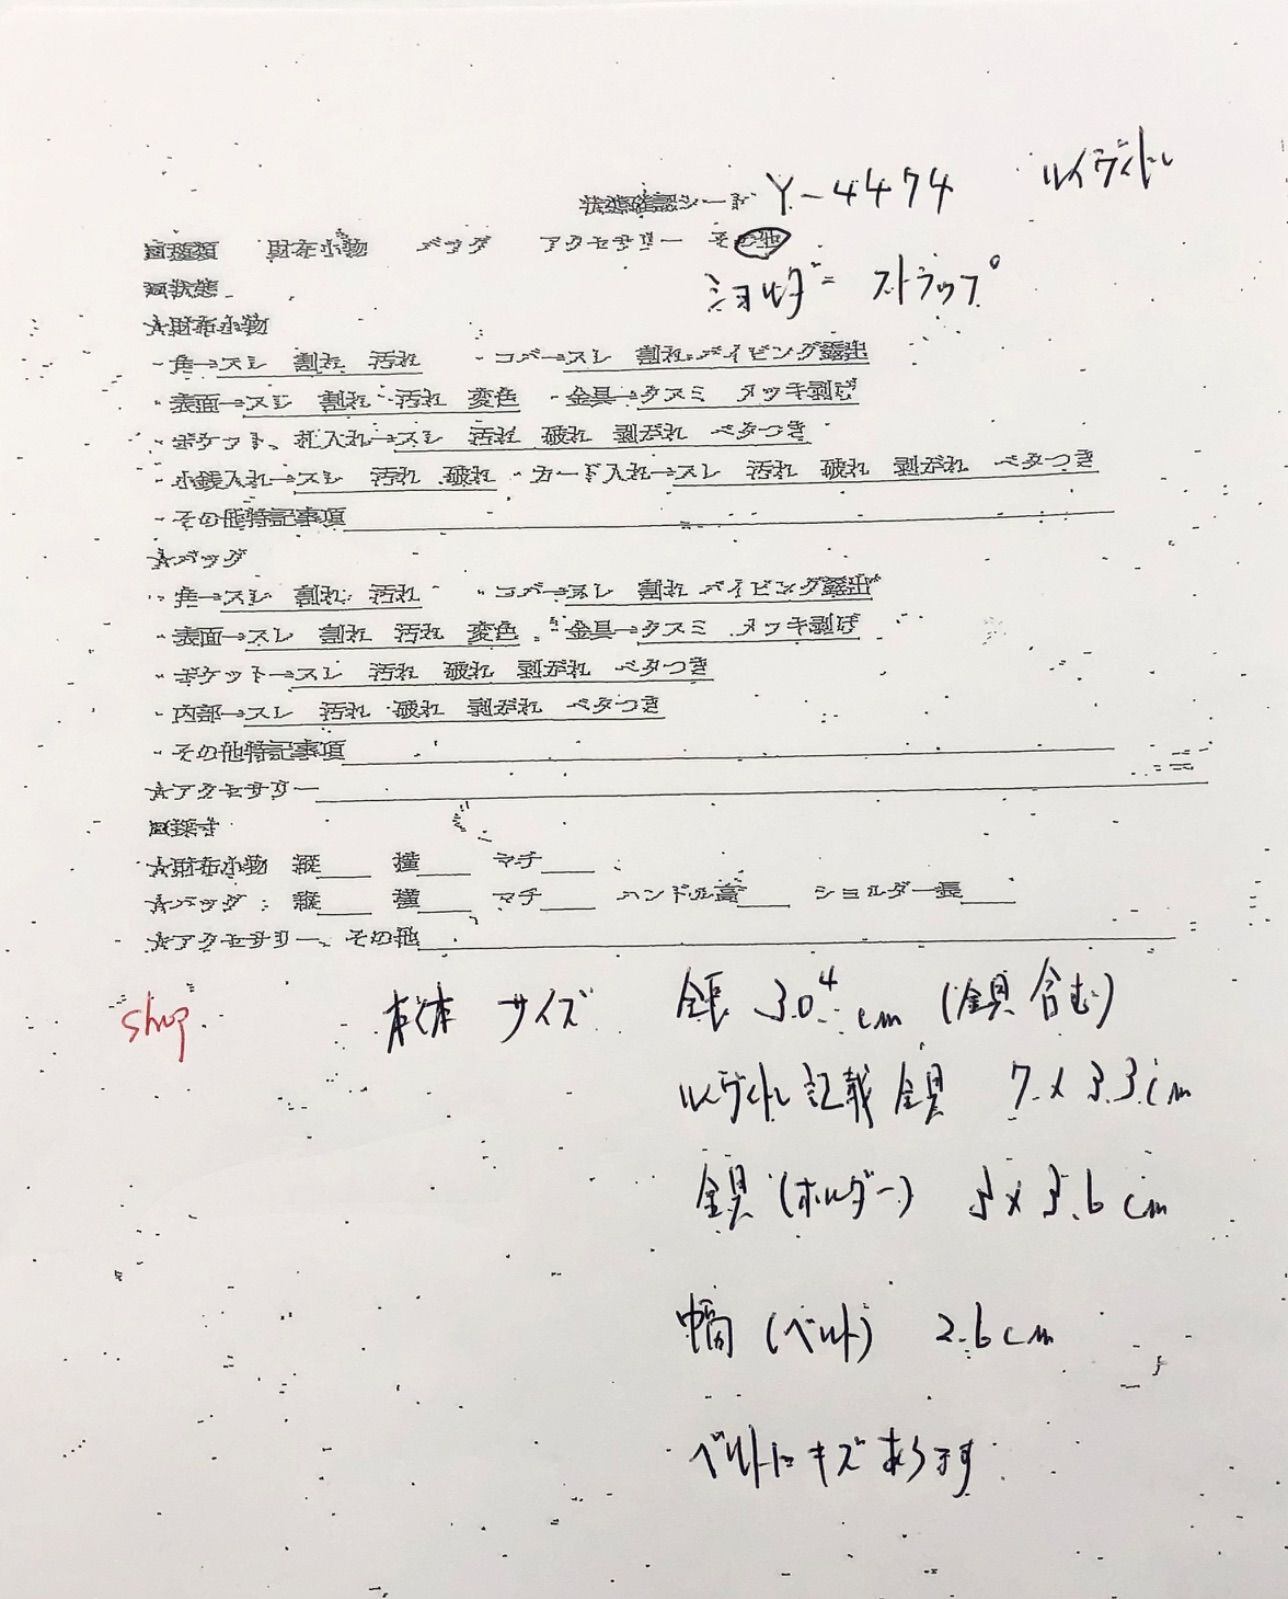 状態確認シート Y-4474 ルイヴィトン
□種類 財布小物 バッグ アクセサリー その他
□状態 ショルダーストラップ
☆財布小物
・角→スレ 割れ 汚れ ・コバ→スレ 割れ パイピング露出
・表面→スレ 割れ 汚れ 変色 ・金具→クスミ メッキ剥げ
・ポケット、札入れ→スレ 汚れ 破れ 剥がれ ベタつき
・小銭入れ→スレ 汚れ 破れ ・カード入れ→スレ 汚れ 破れ 剥がれ ベタつき
・その他特記事項
☆バッグ
・角→スレ 割れ 汚れ ・コバ→スレ 割れ パイピング露出
・表面→スレ 割れ 汚れ 変色 ・金具→クスミ メッキ剥げ
・ポケット→スレ 汚れ 破れ 剥がれ ベタつき
・内部→スレ 汚れ 破れ 剥がれ ベタつき
・その他特記事項
☆アクセサリー
□採寸
☆財布小物 縦 横 マチ
☆バッグ: 縦 横 マチ ハンドル高 ショルダー長
☆アクセサリー、その他
shop 本体サイズ 全長 30.4cm (金具含む)
ルイヴィトン記載金具 7×3.3cm
金具(ホルダー) 5×3.6cm
幅(ベルト) 2.6cm
ベルトにキズあります